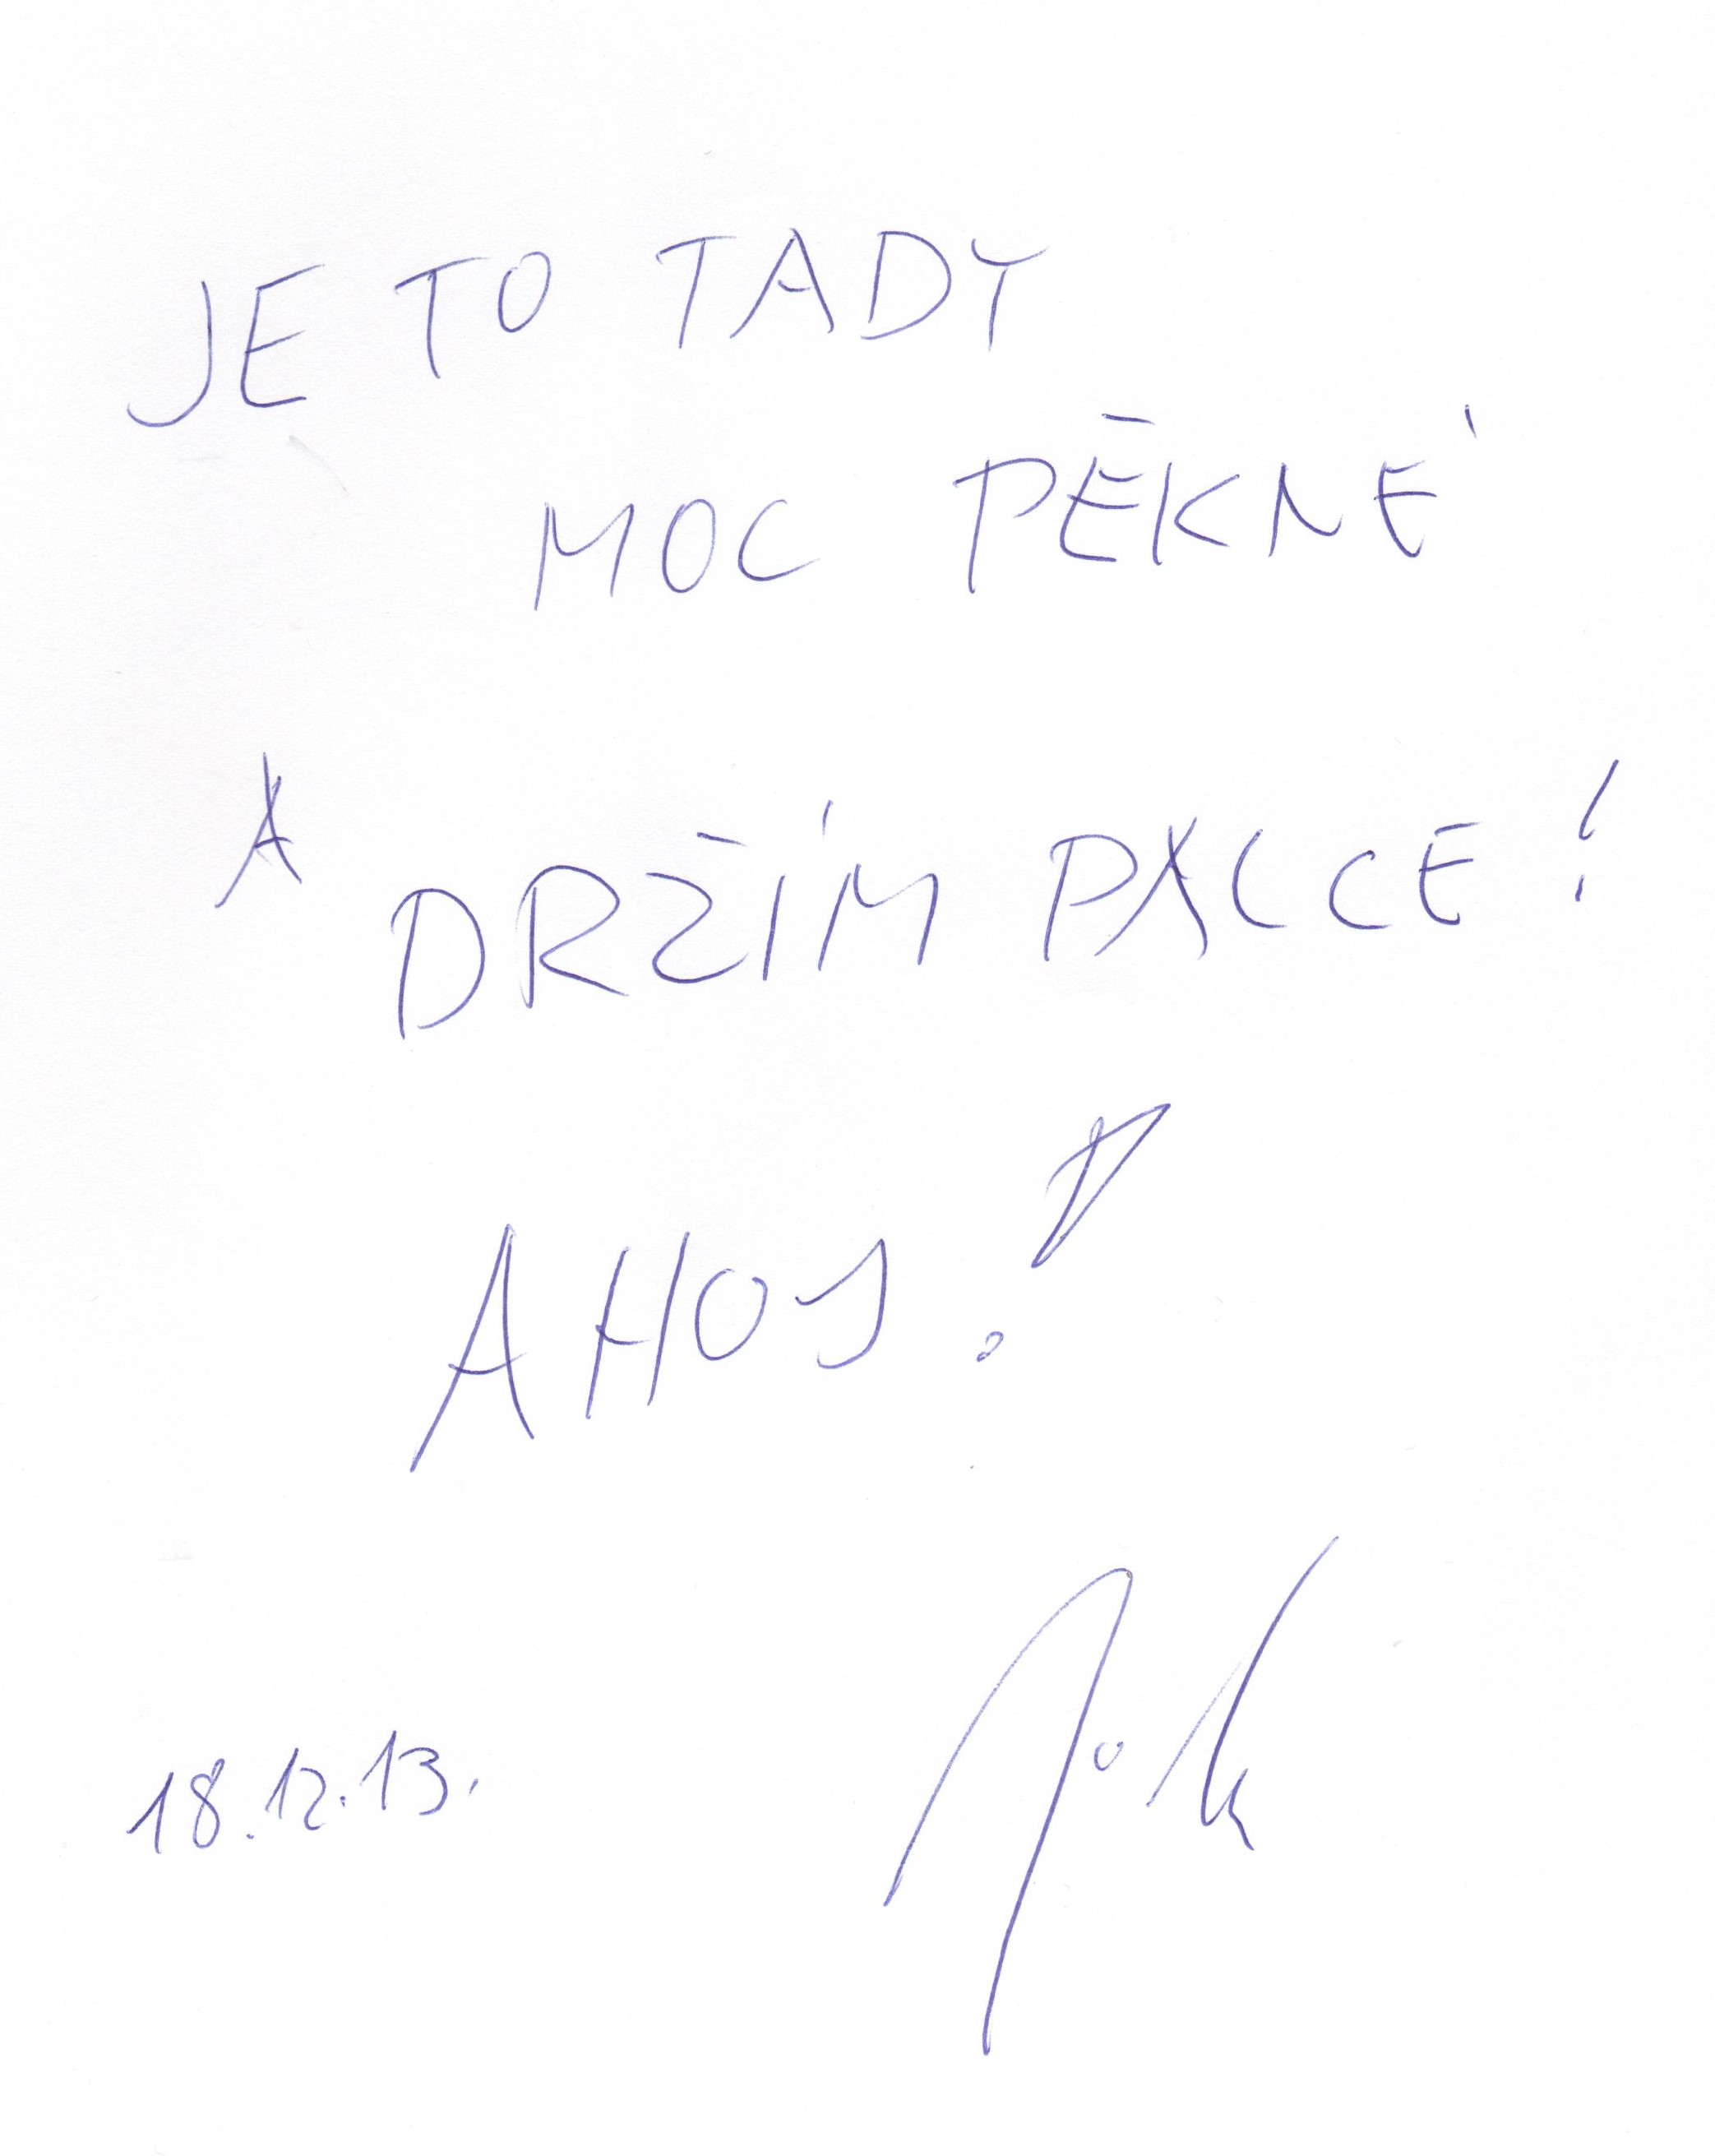 JE TO TADY
MOC PĚKNÉ
A DRŽÍM PALCE!
AHOJ!
18.12.13.